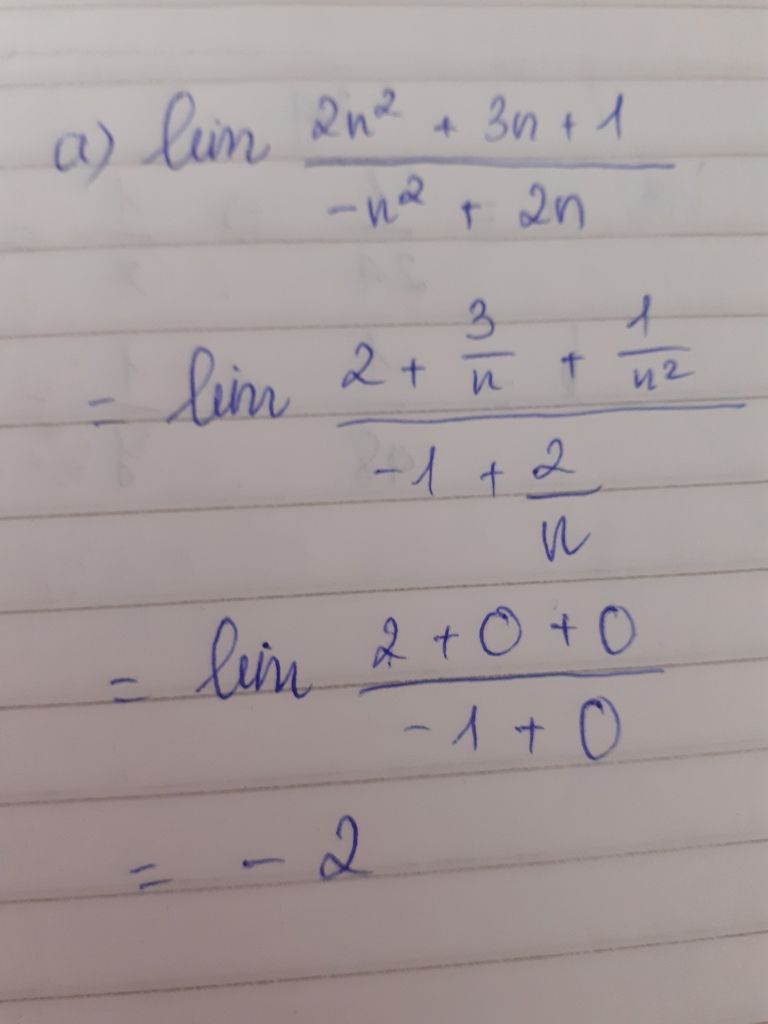 a) lim (2n² + 3n + 1)/(-n² + 2n)
= lim (2 + 3/n + 1/n²)/(-1 + 2/n)
= lim (2 + 0 + 0)/(-1 + 0)
= - 2